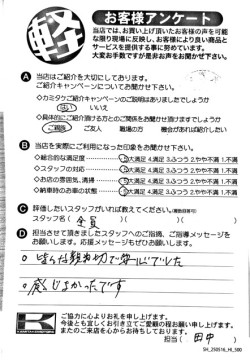 軽
お客様アンケート
当店では、お買い上げ頂いたお客様の声を可能
な限り現場に反映し、お客様により良い商品と
サービスを提供する事に努めています。
大変お手数ですが是非お声をお聞かせ下さい。
A 当店はご紹介を大切にしております。
ご紹介キャンペーンについてお聞かせ下さい。
◇カミタケご紹介キャンペーンのご説明はありましたでしょうか
はい いいえ
◇具体的にご紹介頂ける方とのご関係をお聞かせ頂けますでしょうか
ご親族 ご友人 職場の方 機会があれば紹介したい
B 当店を実際にご利用になった印象をお聞かせ下さい。
◇総合的な満足度 5.大満足 4.満足 3.ふつう 2.やや不満 1.不満
◇スタッフの対応 5.大満足 4.満足 3.ふつう 2.やや不満 1.不満
◇お店の雰囲気、清掃 5.大満足 4.満足 3.ふつう 2.やや不満 1.不満
◇納車時のお車の状態 5.大満足 4.満足 3.ふつう 2.やや不満 1.不満
C 評価したいスタッフがいれば教えてください。(複数回答可)
スタッフ名( 全員 )( )( )
D 担当させて頂きましたスタッフへのご指摘、ご指導メッセージを
お願いします。応援メッセージもぜひお願いします。
感じよかったです
ご協力に心よりお礼を申し上げます。
今後とも宜しくお引き立てご愛顧の程お願い申し上げます。
またのご来店を心からお待ちしております。
担当( 田中 )
SH_250516_HI_500